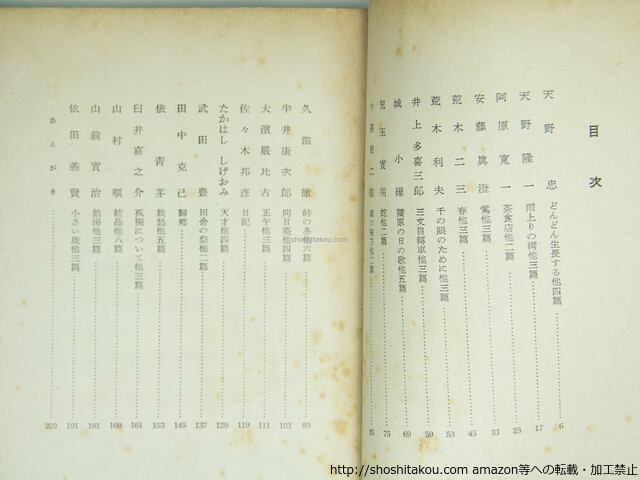 目次
天野忠 どんどん生長する他四篇 6
天野隆一 雨上りの街他三篇 17
阿原寛一 茶食店他二篇 25
安藤眞澄 鶯他三篇 33
荒木二三 春他三篇 45
荒木利夫 千の眼のために他三篇 53
井上多喜三郎 三文自轉車他三篇 59
城小碓 他五篇 69
兒玉實用 蛇他二篇 75
二郎 他二篇 85
久澁徹 峠の冬他六篇 93
半井康次郎 向日葵他四篇 103
大濱嚴比古 正午他三篇 111
佐々木邦彦 日記 119
たかはししげおみ 天才他四篇 129
武田豊 田舎の祭他二篇 137
田中克己 歸鄕 145
俵靑茅 旅愁他五篇 153
臼井喜之介 孤獨について他三篇 161
山村順 結晶他八篇 169
山前實治 他三篇 181
依田義賢 小さい旅他三篇 191
あとがき 202
shoshitakou.com
http://shoshitakou.com amazon等への転載・加工禁止